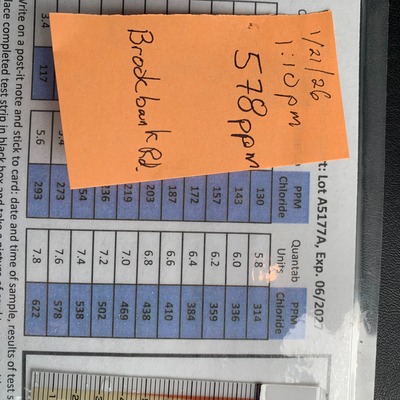 1/21/26
1:10pm
578 ppm
Brockbank Rd.
t: Lot A5177A, Exp. 06/2027
PPM Chloride Quantab Units PPM Chloride
130 5.8 314
143 6.0 336
157 6.2 359
172 6.4 384
187 6.6 410
203 6.8 438
219 7.0 469
36 7.2 502
54 7.4 538
273 7.6 578
3.4 117 5.6 293 7.8 622
Write on a post-it note and stick to card: date and time of sample, results of test s
lace completed test strip in black box and take a picture of